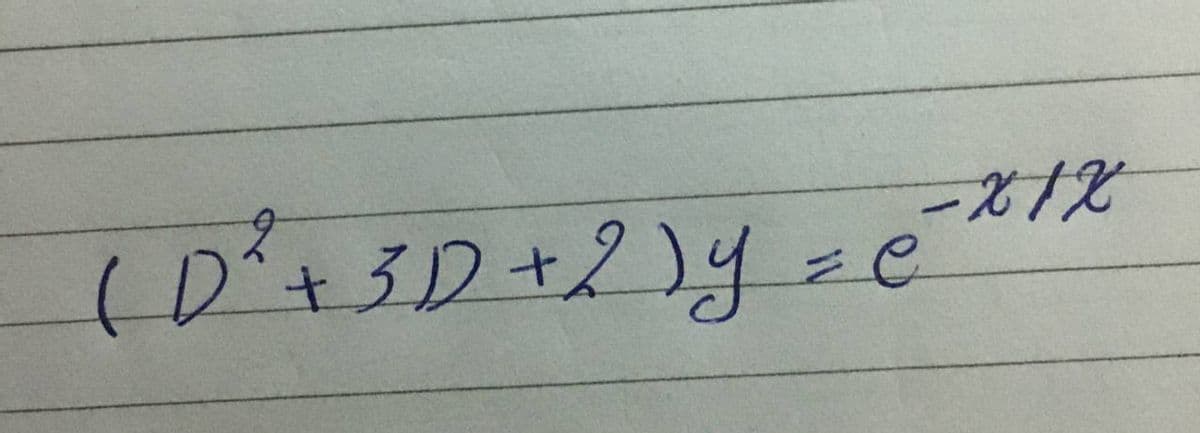 (D²+3D+2)y = e^{-x/x}